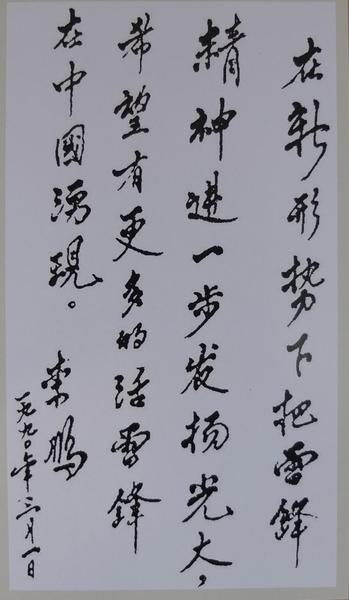 在新形势下把雷锋
精神进一步发扬光大，
希望有更多的活雷锋
在中國涌现。
李鹏
一九九〇年三月一日